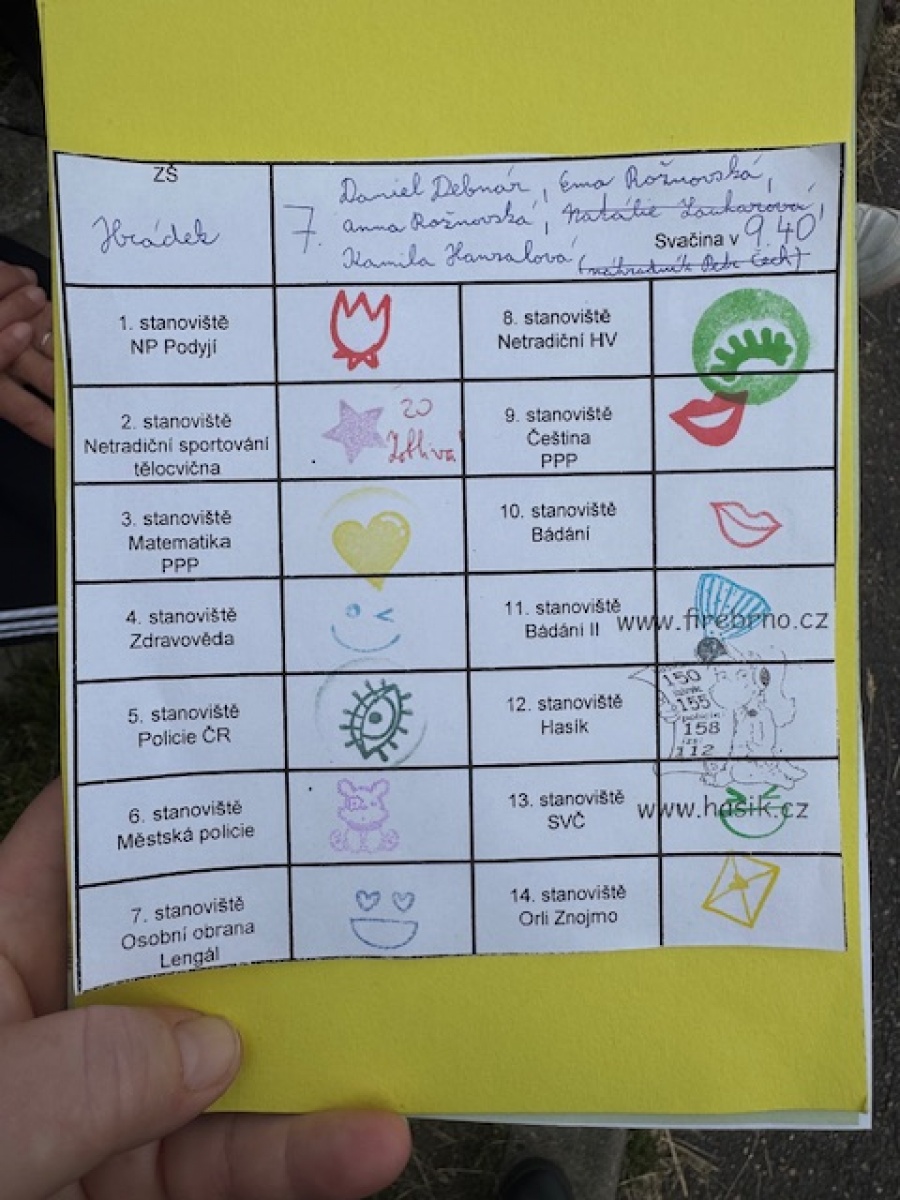 ZŠ
Hrádek
7.
Daniel Debnár, Ema Rožnovská,
Anna Rožnovská, Natálie Laukarová,
Svačina v 9.40
Kamila Hanzalová (náhradník Petr Čech)
1. stanoviště
NP Podyjí
8. stanoviště
Netradiční HV
2. stanoviště
Netradiční sportování
tělocvična
20
9. stanoviště
Čeština
PPP
3. stanoviště
Matematika
PPP
10. stanoviště
Bádání
4. stanoviště
Zdravověda
11. stanoviště
Bádání II
www.firebrno.cz
5. stanoviště
Policie ČR
12. stanoviště
Hasík
150
155
158
112
6. stanoviště
Městská policie
13. stanoviště
SVČ
www.hasik.cz
7. stanoviště
Osobní obrana
Lengál
14. stanoviště
Orli Znojmo